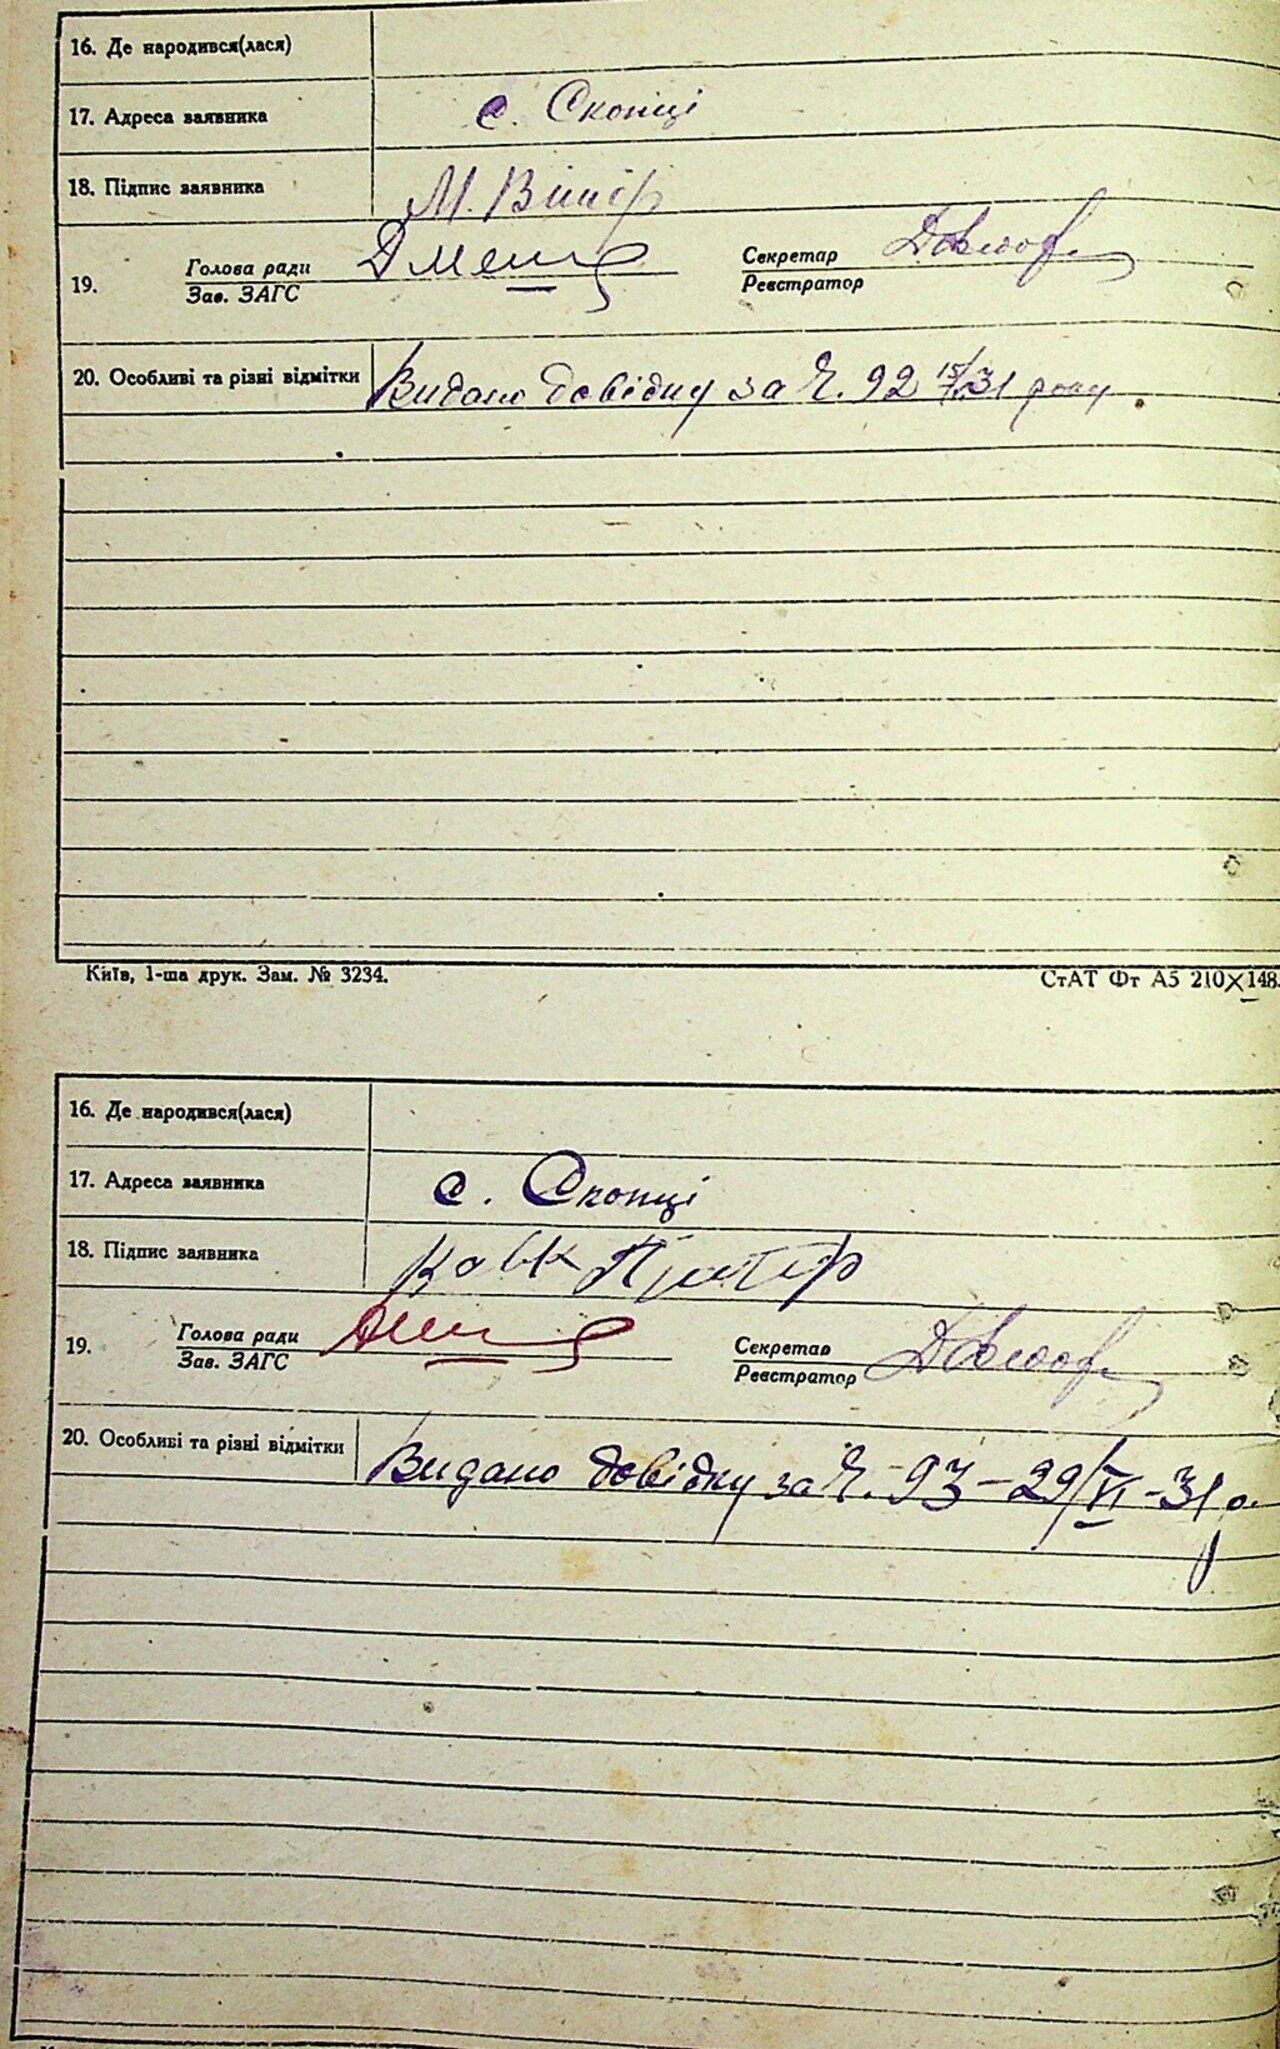 16. Де народився(лася)
17. Адреса заявника с. Скопці
18. Підпис заявника М.
19. Голова ради Секретар
Зав. ЗАГС Реєстратор
20. Особливі та різні відмітки Видано довідку за Ч. 92 15/ 31 року.
Київ, 1-ша друк. Зам. № 3234. СтАТ Фт А5 210×148.
16. Де народився(лася)
17. Адреса заявника с. Скопці
18. Підпис заявника
19. Голова ради Секретар
Зав. ЗАГС Реєстратор
20. Особливі та різні відмітки Видано довідку за Ч. 93 – 29/VI – 31 р.